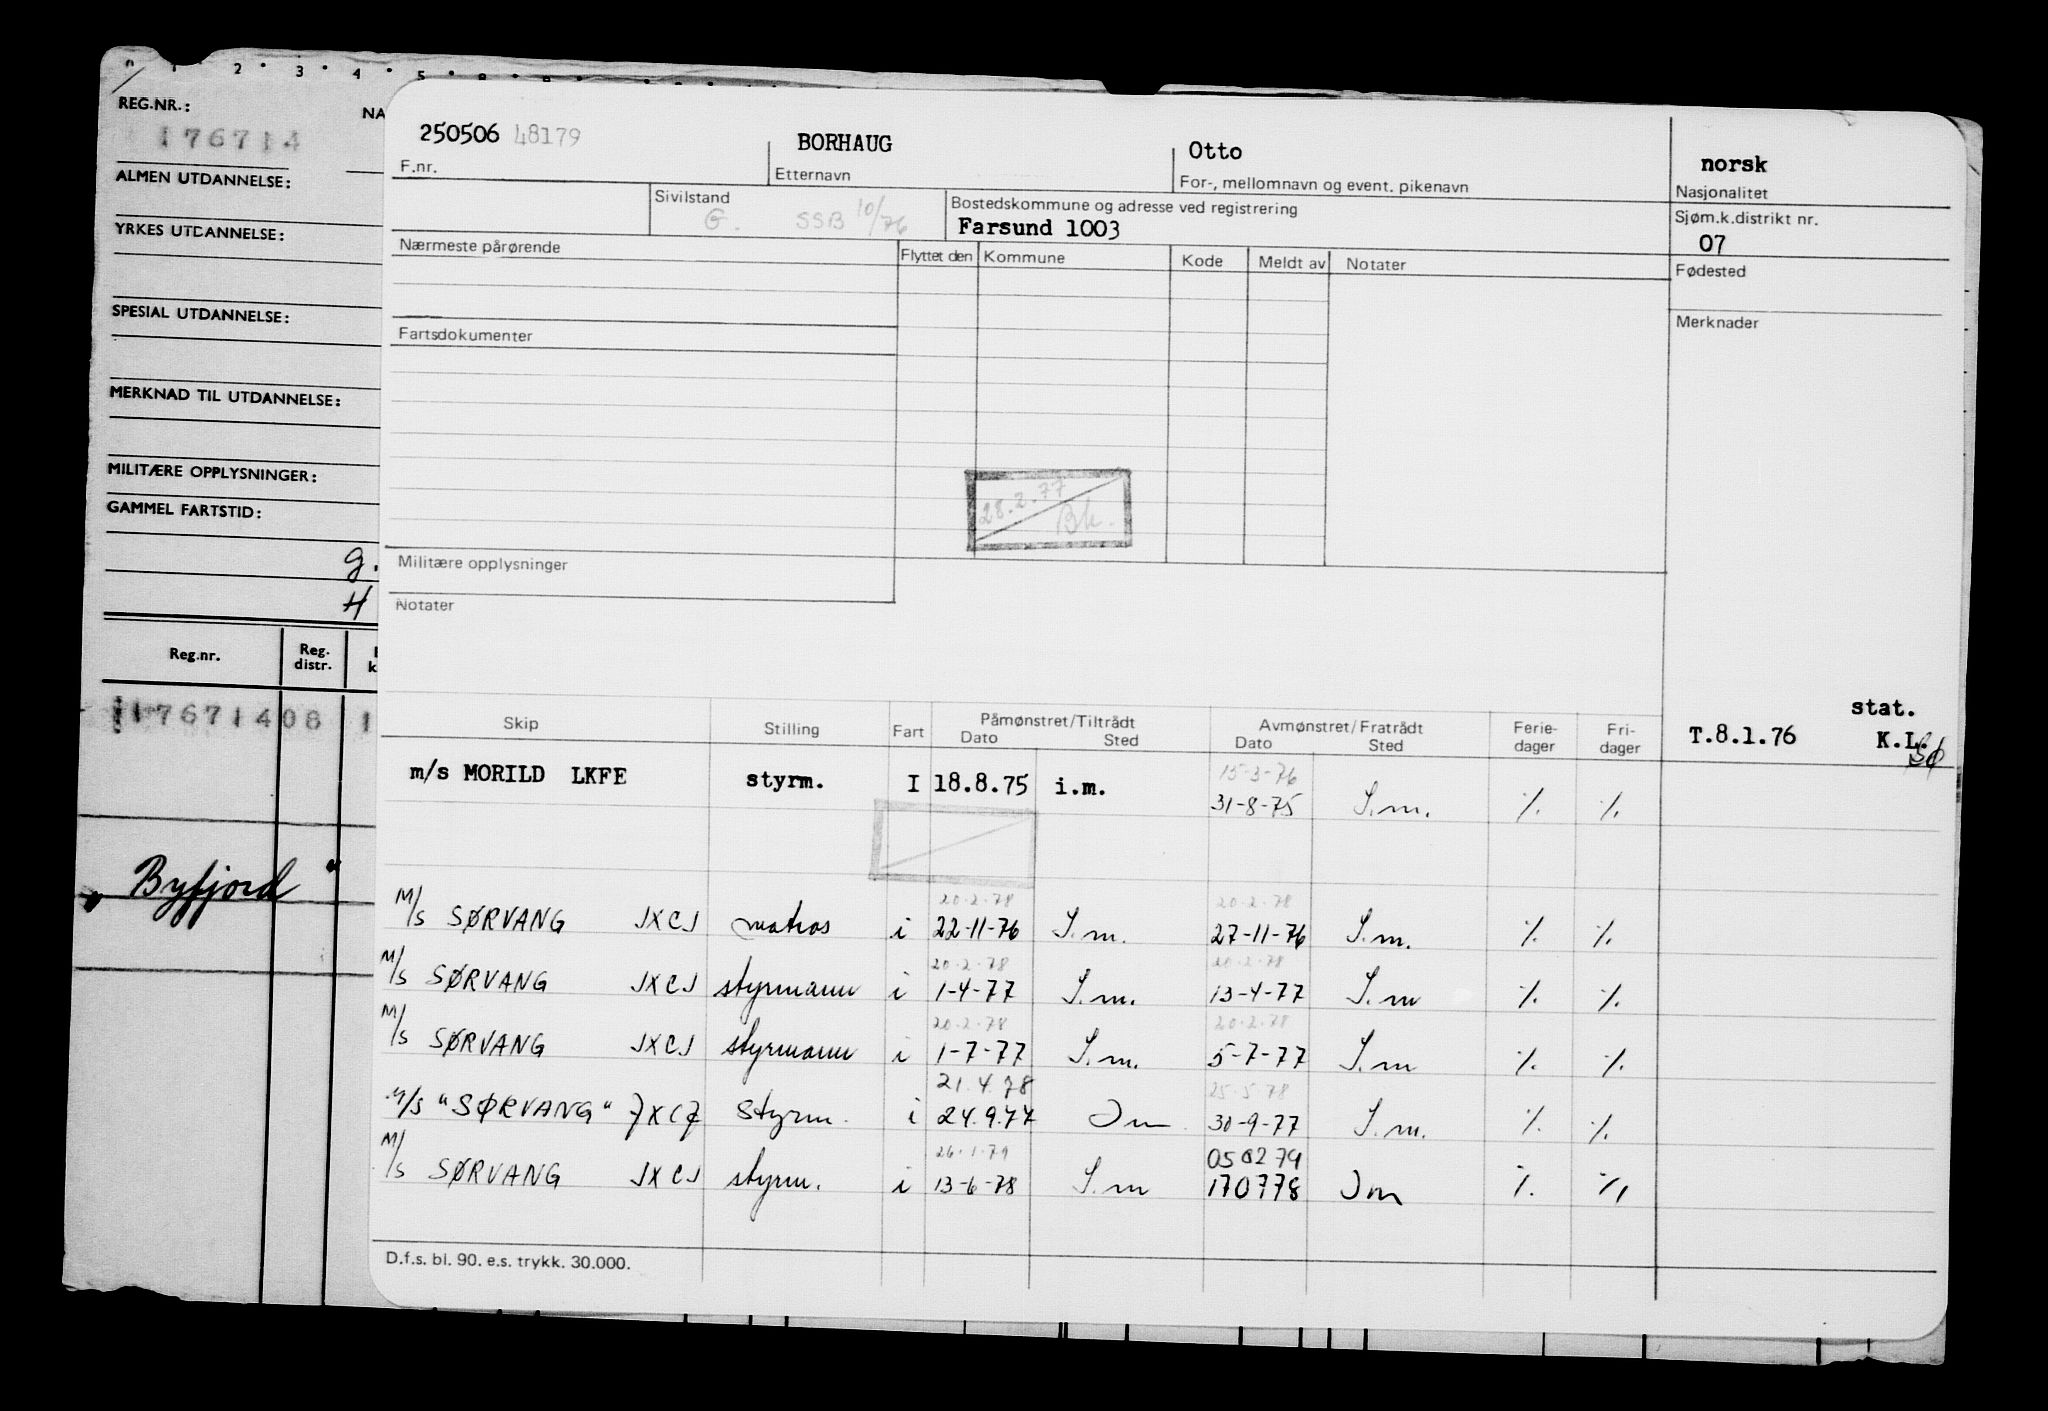 0 1 2 3 4 5
REG.NR.:
176714
NA
ALMEN UTDANNELSE:
YRKES UTDANNELSE:
SPESIAL UTDANNELSE:
MERKNAD TIL UTDANNELSE:
MILITÆRE OPPLYSNINGER:
GAMMEL FARTSTID:
g.
H
Reg.nr. Reg. distr. k
17671408 1
"Byfjord"
250506 48179 BORHAUG Otto norsk
F.nr. Etternavn For-, mellomnavn og event. pikenavn Nasjonalitet
Sivilstand Bostedskommune og adresse ved registrering Sjøm.k.distrikt nr.
G. SSB 10/76 Farsund 1003 07
Nærmeste pårørende Flyttet den Kommune Kode Meldt av Notater Fødested
Fartsdokumenter Merknader
28.2.77
Bk.
Militære opplysninger
Notater
stat.
Skip Stilling Fart Påmønstret/Tiltrådt Avmønstret/Fratrådt Ferie- Fri- T.8.1.76 K.L.
Dato Sted Dato Sted dager dager
15-3-76
m/s MORILD LKFE styrm. I 18.8.75 i.m. 31-8-75 I.m. ٪ ٪
20.2.78 20.2.78
M/S SØRVANG JXCJ matros i 22-11-76 I.m. 27-11-76 I.m. ٪ ٪
20.2.78 20.2.78
M/S SØRVANG JXCJ styrmann i 1-4-77 I.m. 13-4-77 I.m ٪ ٪
20.2.78 20.2.78
M/S SØRVANG JXCJ styrmann i 1-7-77 I.m. 5-7-77 I.m ٪ ٪
21.4.78 25.5.78
M/S "SØRVANG" JXCJ Styrm. i 24.9.77 Im 30-9-77 I.m. ٪ ٪
26.1.79 050279
M/S SØRVANG JXCJ styrm. i 13-6-78 I.m 170778 Im ٪ ٪
D.f.s. bl. 90. e.s. trykk. 30.000.